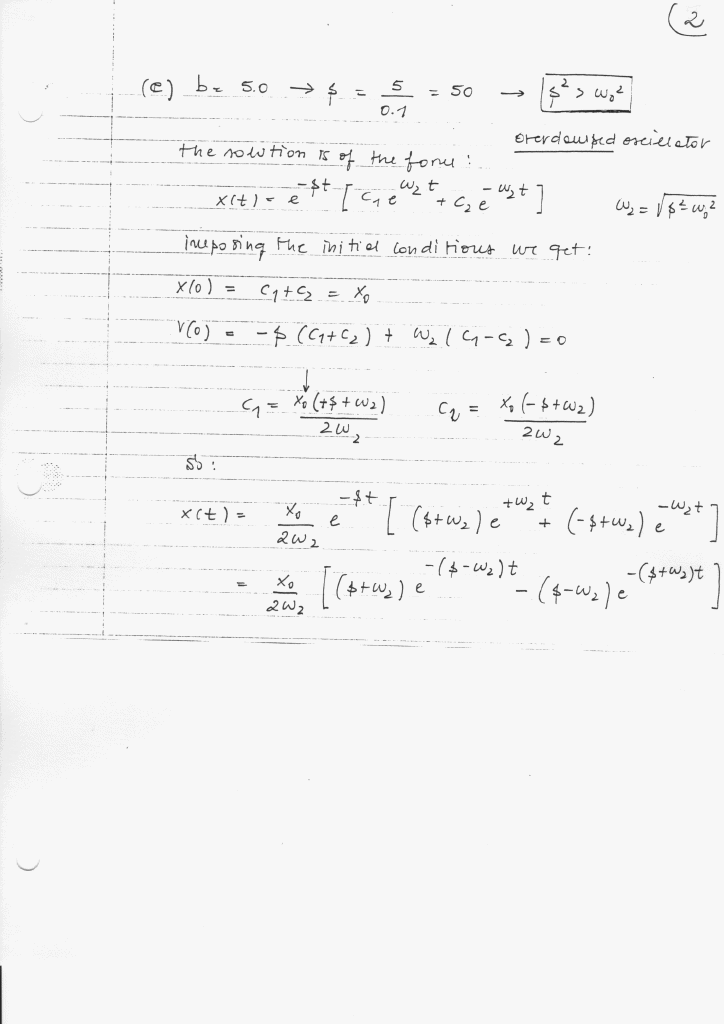 (2
(e) b = 5.0 → β = 5/0.1 = 50 → β² > ω₀²
overdamped oscillator
the solution is of the form :
x(t) = e^{-βt} [ C₁ e^{ω₂t} + C₂ e^{-ω₂t} ] ω₂ = √(β² - ω₀²)
imposing the initial conditions we get :
x(0) = C₁ + C₂ = x₀
v(0) = -β (C₁+C₂) + ω₂ ( C₁ - C₂ ) = 0
↓
C₁ = x₀ (+β + ω₂) / 2ω₂ C₂ = x₀ (-β + ω₂) / 2ω₂
so :
x(t) = x₀/2ω₂ e^{-βt} [ (β+ω₂) e^{+ω₂t} + (-β+ω₂) e^{-ω₂t} ]
= x₀/2ω₂ [ (β+ω₂) e^{-(β-ω₂)t} - (β-ω₂) e^{-(β+ω₂)t} ]